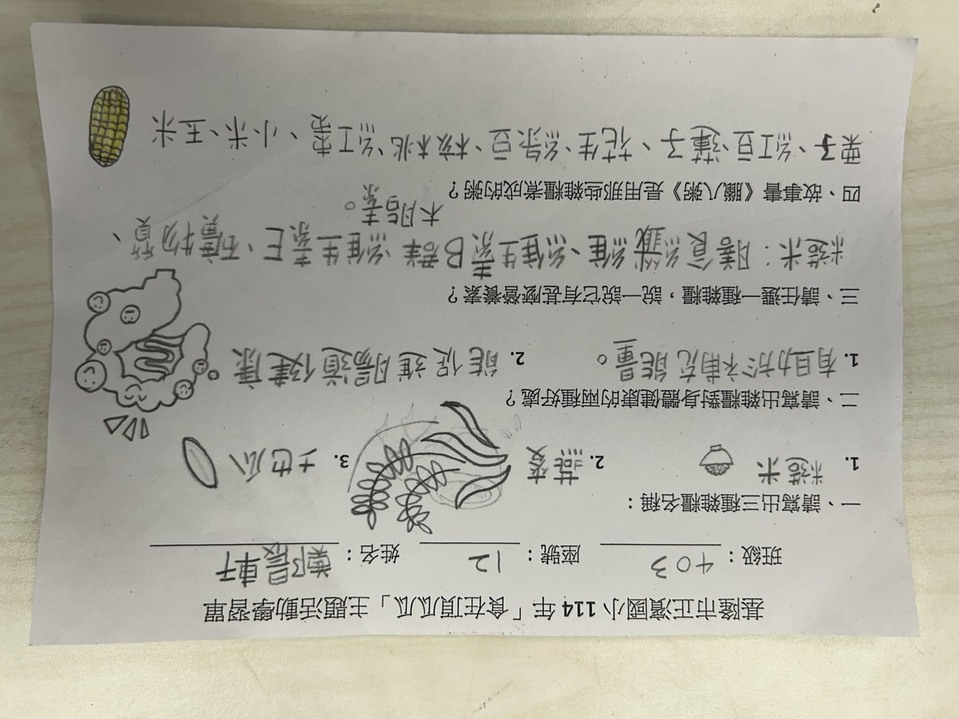 基隆市正濱國小 114 年「食在頂瓜瓜」主題活動學習單
班級：403 座號：12 姓名：鄭
一、請寫出三種雜糧名稱：
1. 糙米 2. 燕麥 3. 地瓜
二、請寫出雜糧對身體健康的兩種好處？
1. 有助於補充能量。 2. 能促進腸道健康。
三、請任選一種雜糧，說一說它有甚麼營養素？
糙米：膳食纖維、維生素B群、維生素E、礦物質、
木脂素。
四、故事書《臘八粥》是用那些雜糧煮成的粥？
栗子、紅豆、蓮子、花生、綠豆、核桃、紅棗、小米、玉米